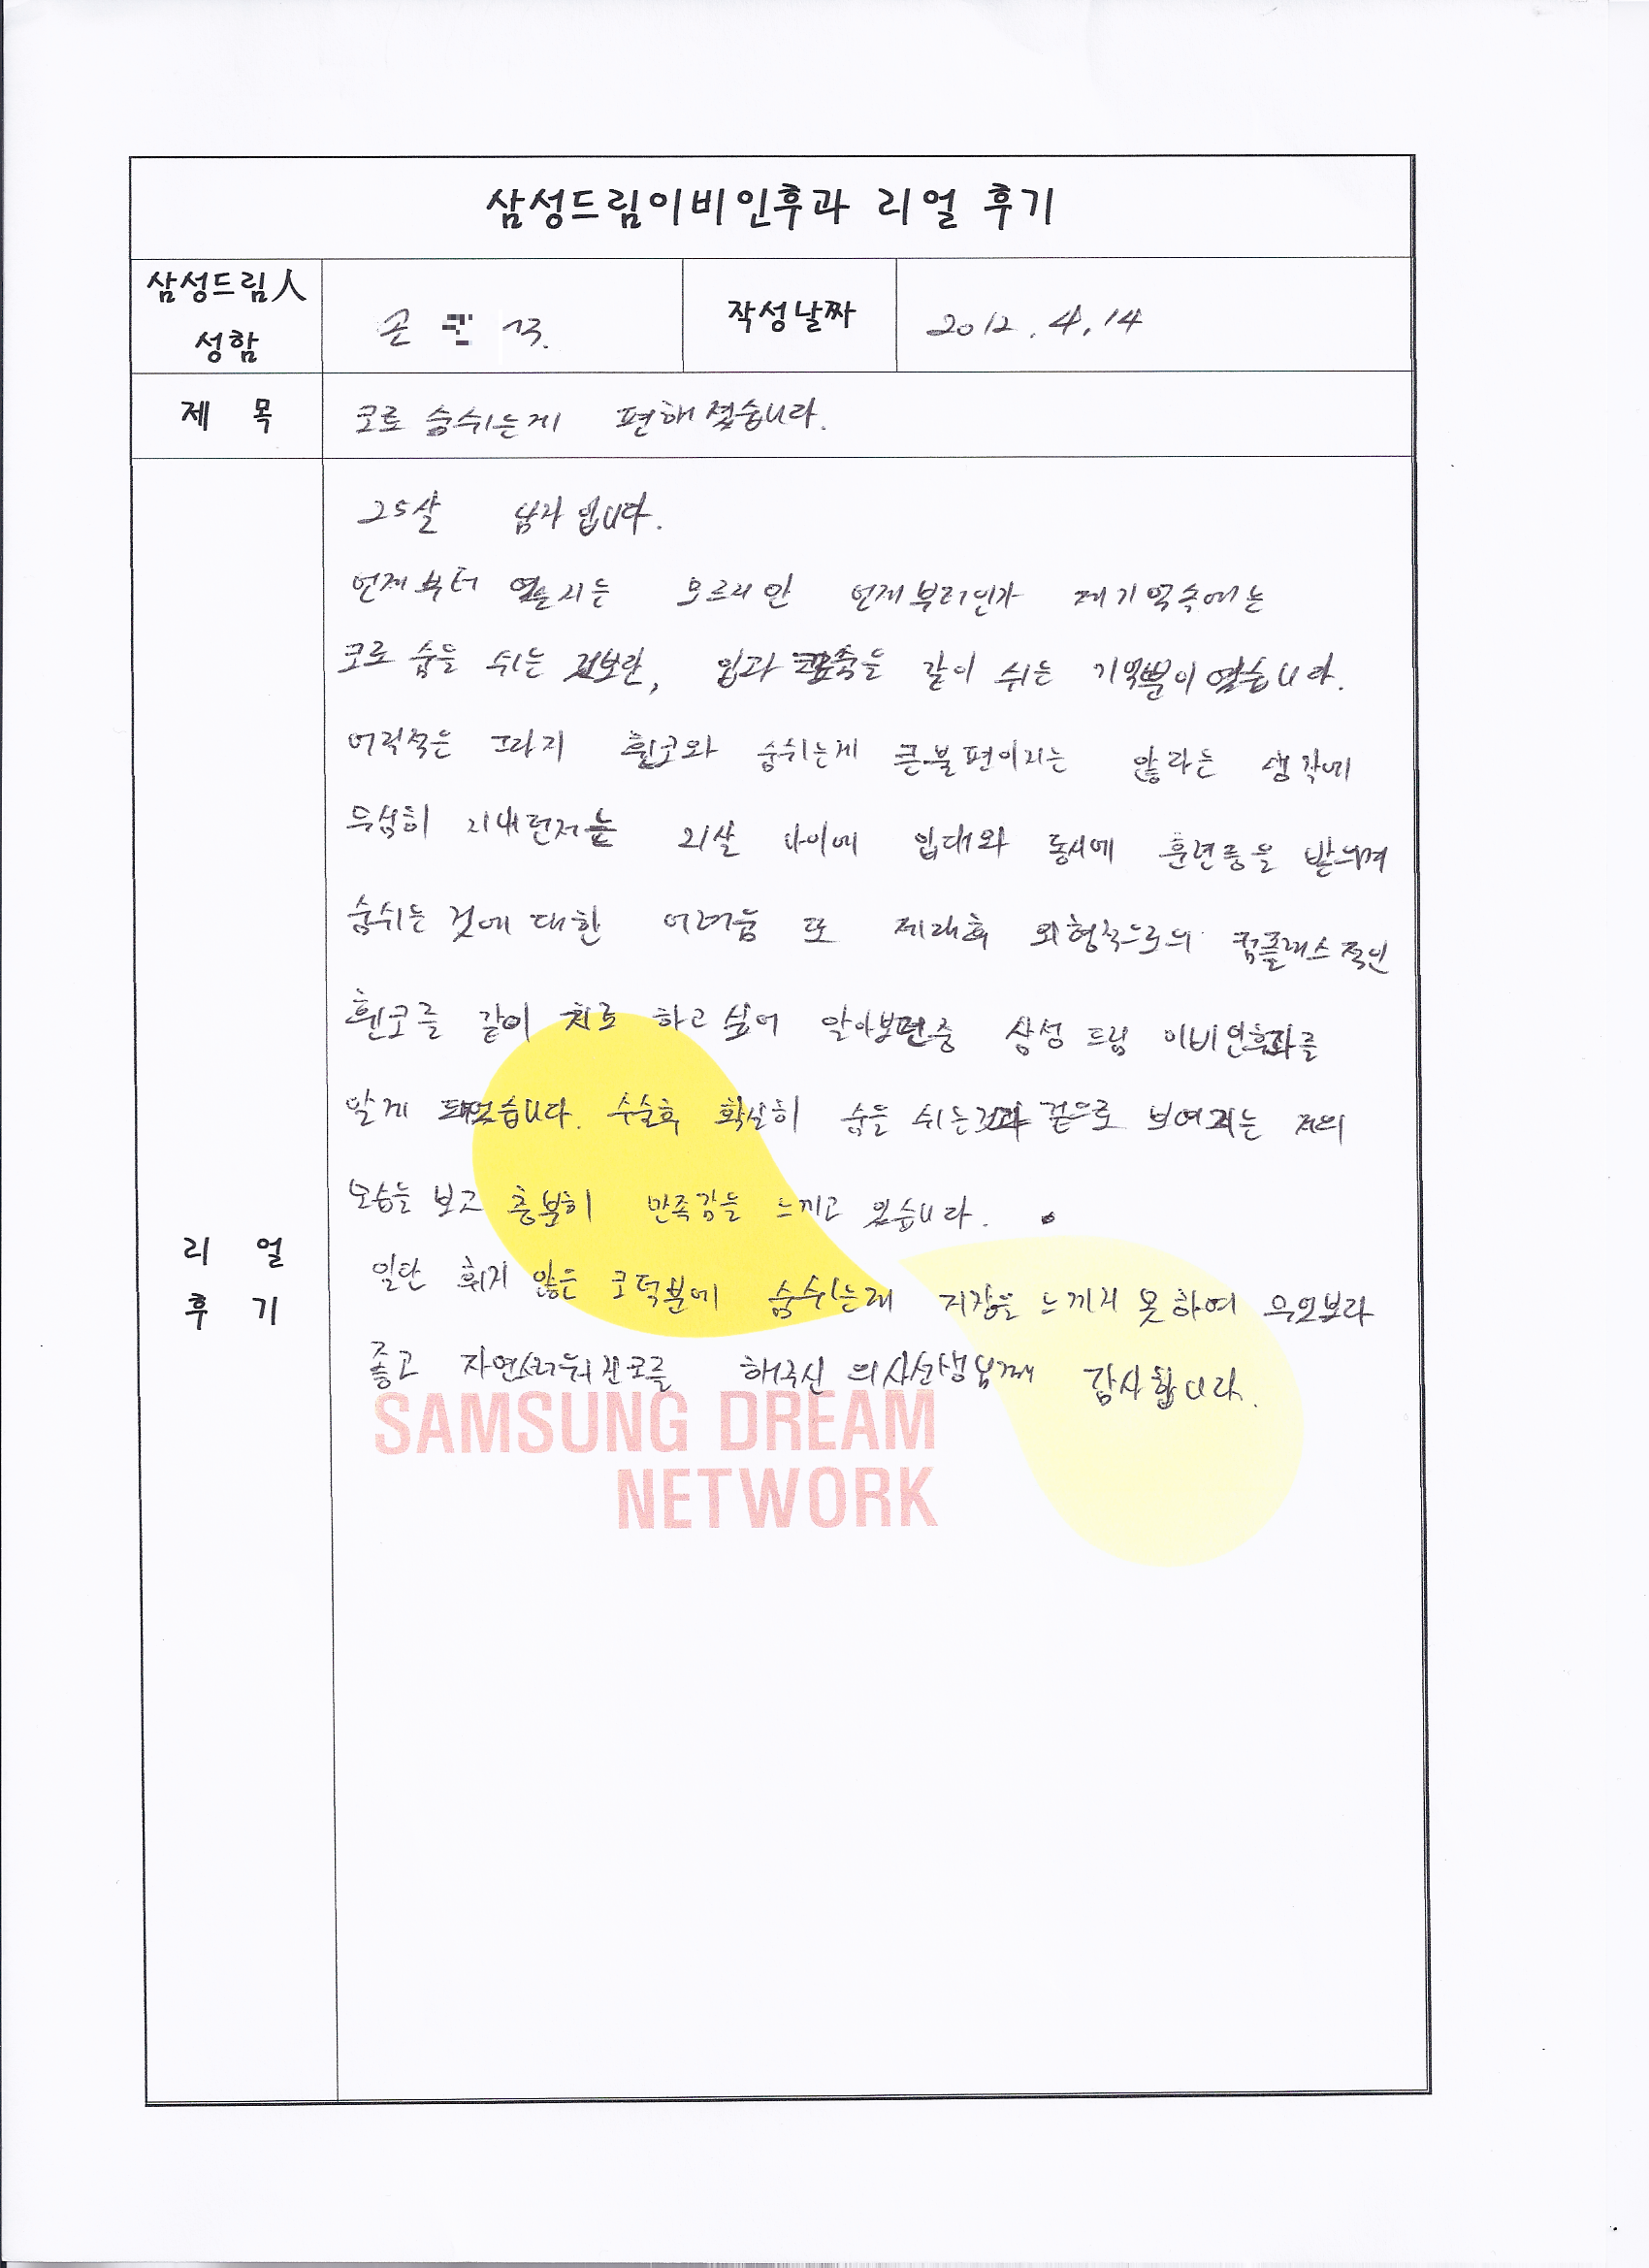 삼성드림이비인후과 리얼 후기
삼성드림人
성함
손
작성날짜
2012. 4. 14
제 목
코로 숨쉬는게 편해졌습니다.
25살 남자 입니다.
언제부터 였는지는 모르지만 언제부터인가 제 기억속에는
코로 숨을 쉬는 것보단, 입과 코로 숨을 같이 쉬는 기억뿐이였습니다.
어릴적은 그다지 휜코와 숨쉬는게 큰불편이지는 않다는 생각에
무심히 지내던저는 21살 나이에 입대와 동시에 훈련중을 받으며
숨쉬는 것에 대한 어려움 또 제대후 외형적으로의 컴플래스적인
휜코를 같이 치료 하고 싶어 알아보던중 삼성 드림 이비인후과를
알게 되었습니다. 수술후 확실히 숨을 쉬는것과 겉으로 보여지는 저의
모습을 보고 충분히 만족감을 느끼고 있습니다.
일단 휘지 않은 코덕분에 숨쉬는데 지장을 느끼지 못하여 무엇보다
좋고 자연스러워진코를 해주신 의사선생님께 감사합니다.
리 얼
후 기
SAMSUNG DREAM
NETWORK